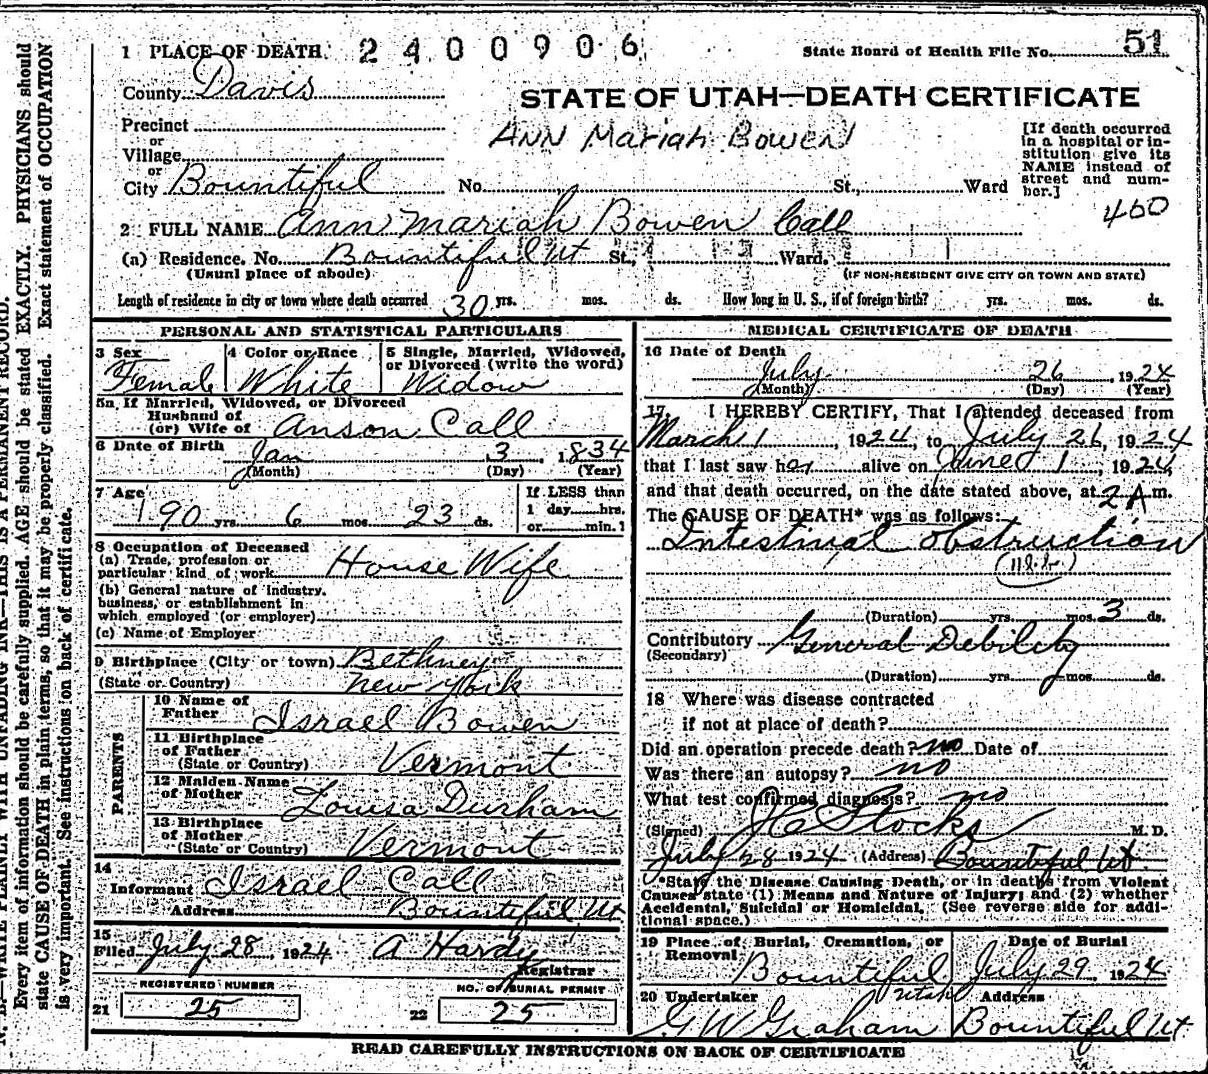 1 PLACE OF DEATH. 2400906 State Board of Health File No. 51
County Davis
STATE OF UTAH—DEATH CERTIFICATE
Precinct
or
Village
or
City Bountiful No. St., Ward
Ann Mariah Bowen
[If death occurred
in a hospital or in-
stitution give its
NAME instead of
street and num-
ber.]
460
2 FULL NAME Ann Mariah Bowen Call
(a) Residence. No. Bountiful Ut St., Ward.
(Usual place of abode) (IF NON-RESIDENT GIVE CITY OR TOWN AND STATE)
Length of residence in city or town where death occurred 30 yrs. mos. ds. How long in U. S., if of foreign birth? yrs. mos. ds.
PERSONAL AND STATISTICAL PARTICULARS
3 Sex Female
4 Color or Race White
5 Single, Married, Widowed,
or Divorced (write the word)
Widow
5a If Married, Widowed, or Divorced
Husband of
(or) Wife of Anson Call
6 Date of Birth Jan 3, 1834
(Month) (Day) (Year)
7 Age 90 yrs. 6 mos. 23 ds.
If LESS than
1 day hrs.
or min. ?
8 Occupation of Deceased
(a) Trade, profession or
particular kind of work House Wife
(b) General nature of industry,
business, or establishment in
which employed (or employer)
(c) Name of Employer
9 Birthplace (City or town) Bethney
(State or Country) New York
PARENTS
10 Name of
Father Israel Bowen
11 Birthplace
of Father
(State or Country) Vermont
12 Maiden Name
of Mother Louisa Durham
13 Birthplace
of Mother
(State or Country) Vermont
14
Informant Israel Call
Address Bountiful, Ut
15
Filed July 28, 1924 A Hardy
Registrar
REGISTERED NUMBER NO. OF BURIAL PERMIT
21 25 22 25
MEDICAL CERTIFICATE OF DEATH
16 Date of Death
July 26, 1924
(Month) (Day) (Year)
17 I HEREBY CERTIFY, That I attended deceased from
March 1, 1924, to July 26, 1924
that I last saw her alive on June 1, 1924,
and that death occurred, on the date stated above, at 2 A m.
The CAUSE OF DEATH* was as follows:
Intestinal obstruction
(Duration) yrs. mos. 3 ds.
Contributory General Debility
(Secondary)
(Duration) yrs. mos. ds.
18 Where was disease contracted
if not at place of death?
Did an operation precede death? no Date of
Was there an autopsy? no
What test confirmed diagnosis? no
(Signed) J C Stocks M. D.
July 28 1924 (Address) Bountiful Ut
*State the Disease Causing Death, or in deaths from Violent
Causes state (1) Means and Nature of Injury; and (2) whether
Accidental, Suicidal or Homicidal. (See reverse side for addi-
tional space.)
19 Place of Burial, Cremation, or
Removal
Bountiful
Utah
Date of Burial
July 29, 1924
20 Undertaker
G W Graham
Address
Bountiful Ut
READ CAREFULLY INSTRUCTIONS ON BACK OF CERTIFICATE
N. B.—WRITE PLAINLY WITH UNFADING INK—THIS IS A PERMANENT RECORD.
Every item of information should be carefully supplied. AGE should be stated EXACTLY. PHYSICIANS should
state CAUSE OF DEATH in plain terms, so that it may be properly classified. Exact statement of OCCUPATION
is very important. See instructions on back of certificate.